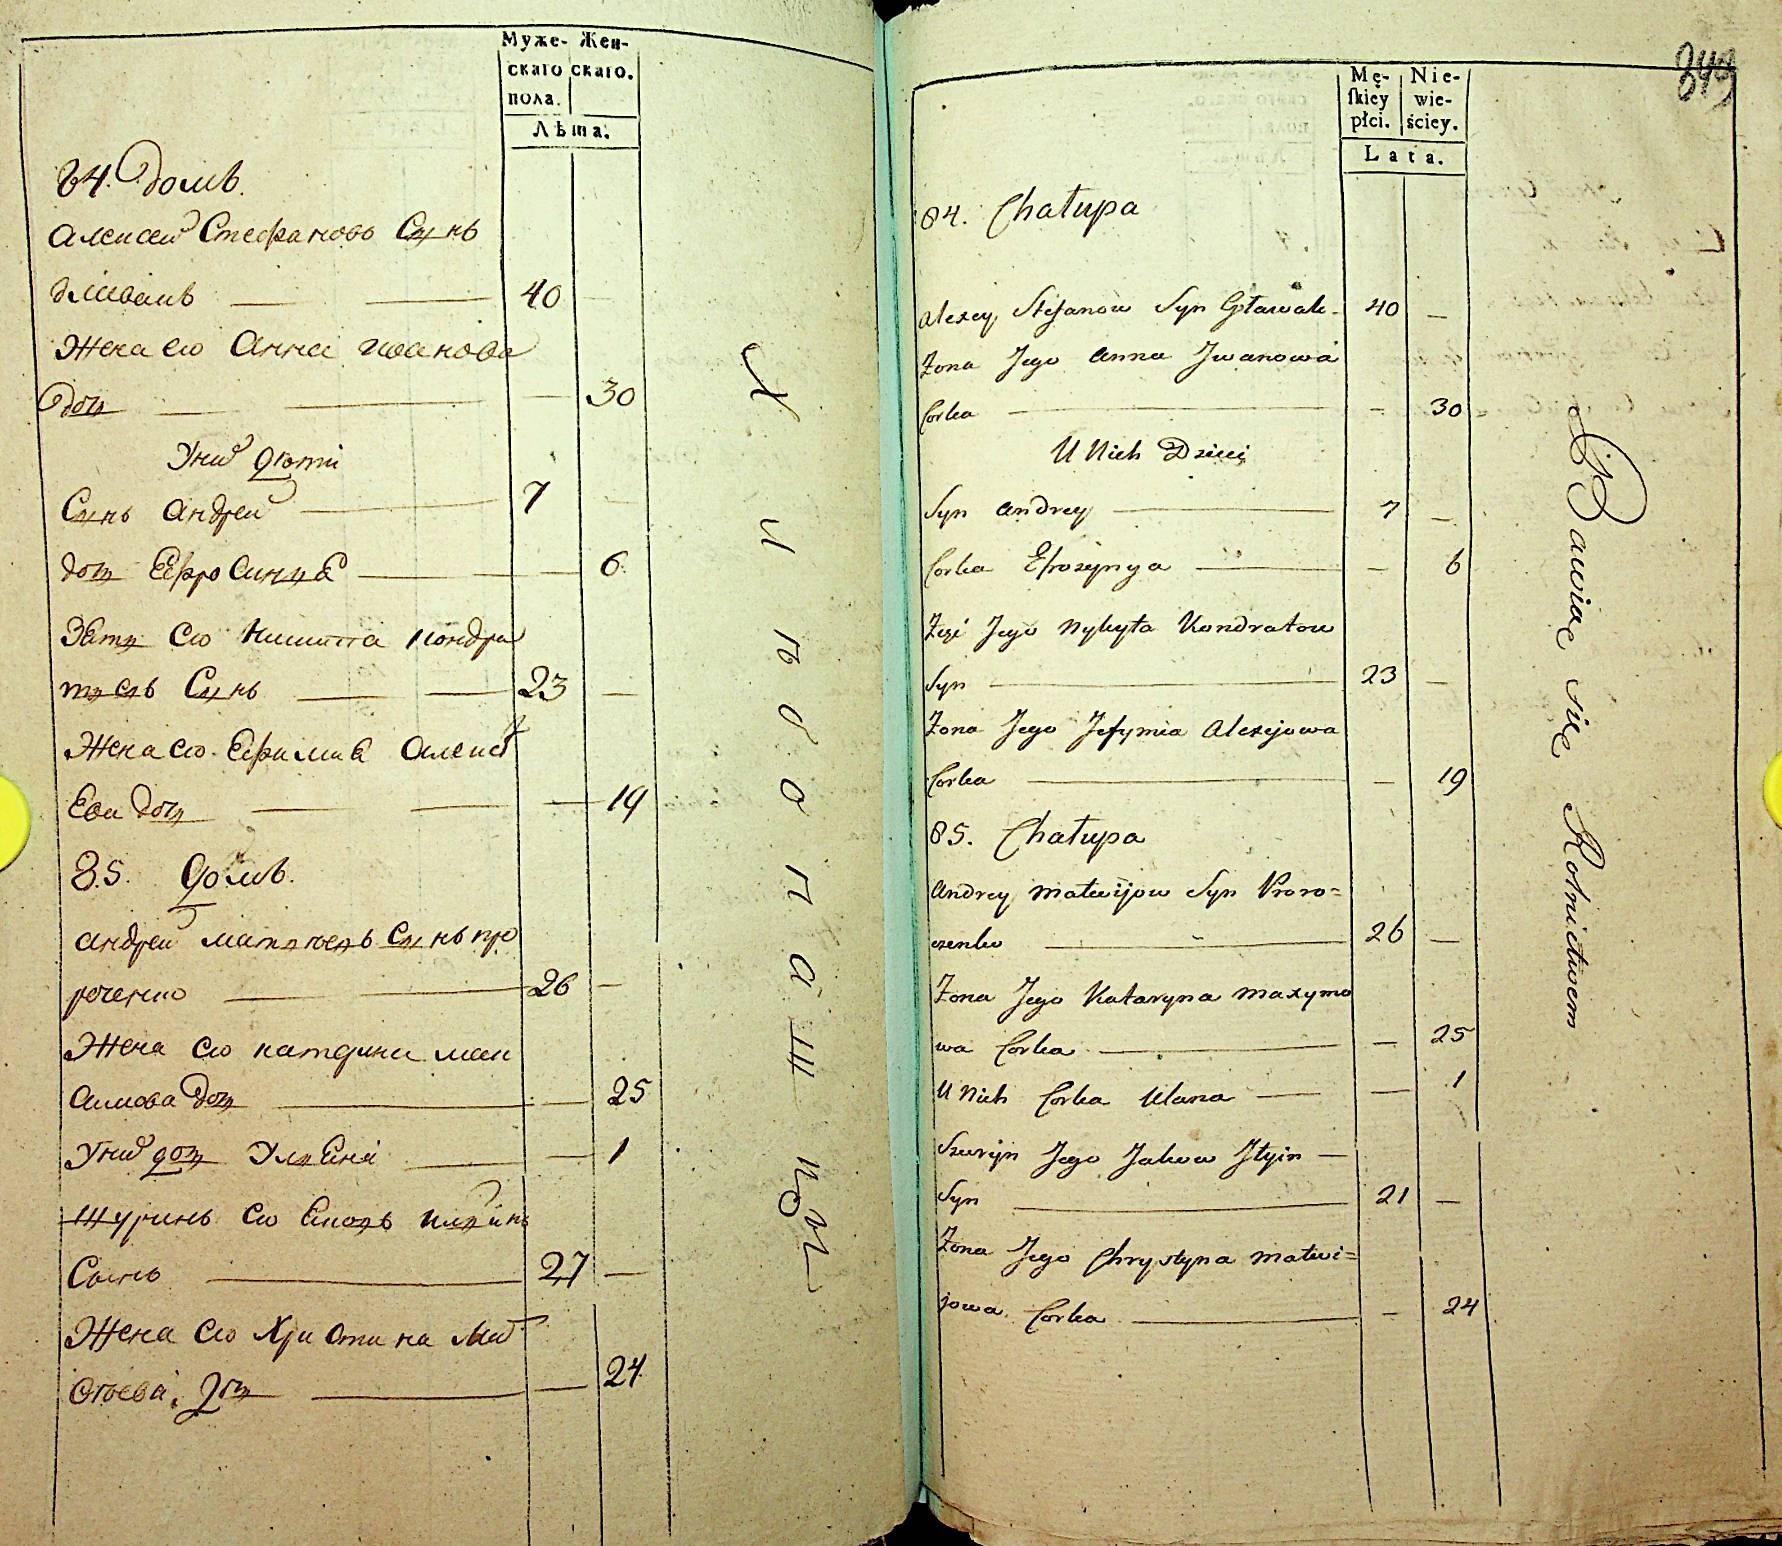 Муже- Жен-
скаго скаго.
пола.
Лѣта.
84. Домъ.
Алексей Стефановъ Сынъ
40
Жена его Анна Иванова
Дочь 30
У них дѣти
Сынъ Андрей 7
дочь Ефросиния 6
Зять его Никита Кондра
тувъ Сынъ 23
Жена его Ефимия Алексѣ
Ева дочь 19
85. Домъ.
Андрей Матвѣевъ Сынъ Про
роченко 26
Жена его Катерина Мак
симова дочь 25
У них дочь Улияна 1
Шуринъ его Яковъ Илиинъ
Сынъ 27
Жена его Христина Мат
фѣева дочь 24
Хлѣбопашцы
849
Mę- Nie-
skiey wie-
płci. ściey.
Lata.
84. Chałupa
Alexey Stefanow Syn 40 —
Żona Jego Anna Jwanowa
Corka — 30
U Nich Dzieci
Syn Andrey 7 —
Corka Efrozynya — 6
Zięć Jego Nykyta Kondratow
Syn 23 —
Żona Jego Jefymia Alexijowa
Corka — 19
85. Chałupa
Andrey Matwijow Syn Proro=
czenko 26 —
Żona Jego Kataryna Maxymo
wa Corka — 25
U Nich Corka Ulana — 1
Szuryn Jego Jakow Jłyin
Syn 21 —
Żona Jego Chrystyna Matwi=
jowa Corka — 24
Bawią się Rolnictwem